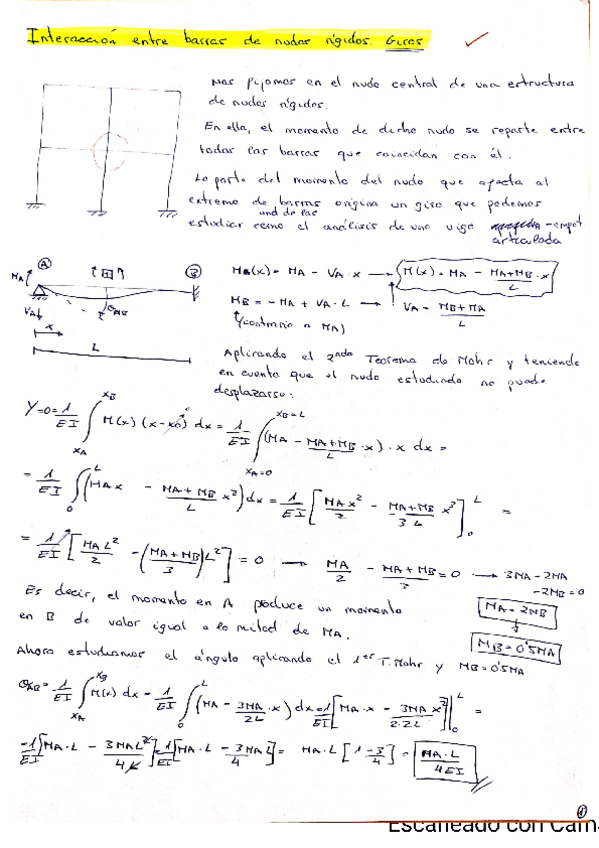 Interacción entre barras de nudos rígidos. Giros
Nos fijamos en el nudo central de una estructura
de nudos rígidos.
En ella, el momento de dicho nudo se reparte entre
todas las barras que coincidan con él.
La parte del momento del nudo que afecta al
extremo de barras origina un giro que podemos
una de las
estudiar como el análisis de una viga -empot
articulada
A
B
MA
VA
θAB
x
L
MB(x) = MA - VA·x → M(x) = MA - (MA+MB)/L · x
MB = -MA + VA·L → VA = (MB+MA)/L
(contrario a MA)
Aplicando el 2ndo Teorema de Mohr y teniendo
en cuenta que el nudo estudiado no puede
desplazarse:
Y=0= 1/EI ∫ xA xB M(x) (x-x0) dx = 1/EI ∫ xA=0 xB=L (MA - (MA+MB)/L · x) · x dx =
= 1/EI ∫ 0 L (MAx - (MA+MB)/L x²) dx = 1/EI [MAx²/2 - (MA+MB)/3L x³] 0 L =
= 1/EI [MAL²/2 - (MA+MB)L²/3] = 0 → MA/2 - (MA+MB)/3 = 0 → 3MA-2MA
-2MB=0
Es decir, el momento en A produce un momento
MA = 2MB
en B de valor igual a la mitad de MA.
MB = 0'5MA
Ahora estudiamos el ángulo aplicando el 1er T. Mohr y MB=0'5MA
θAB = 1/EI ∫ xA xB M(x) dx = 1/EI ∫ 0 L (MA - 3MA/2L · x) dx = 1/EI [MA·x - 3MA x²/2·2L] 0 L =
= 1/EI [MA·L - 3MAL²/4L] = 1/EI [MA·L - 3MAL/4] = MA·L [1-3/4] = MA·L/4EI
1
Escaneado con Cam